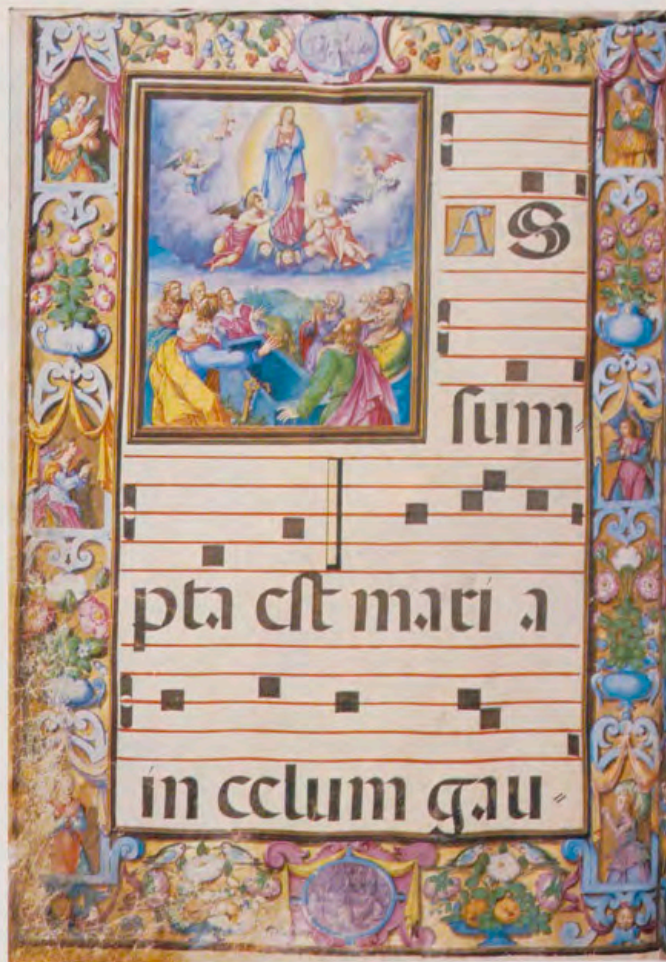 AS
sum=
pta est mari a
in celum gau=